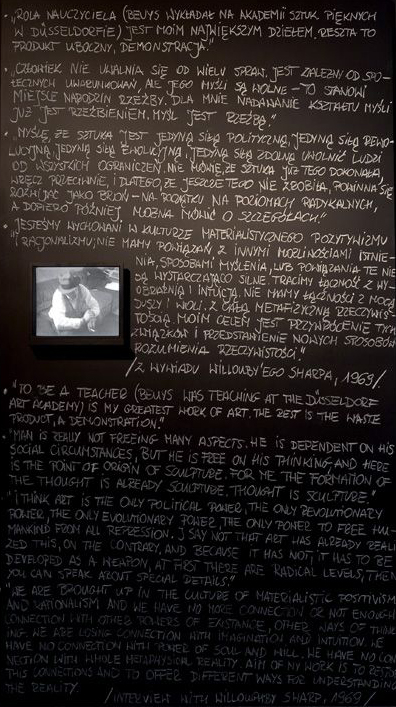 • "ROLA NAUCZYCIELA (BEUYS WYKŁADAŁ NA AKADEMII SZTUK PIĘKNYCH
W DÜSSELDORFIE) JEST MOIM NAJWIĘKSZYM DZIEŁEM, RESZTA TO
PRODUKT UBOCZNY, DEMONSTRACJA."
• "CZŁOWIEK NIE UWALNIA SIĘ OD WIELU SPRAW. JEST ZALEŻNY OD SPO-
ŁECZNYCH UWARUNKOWAŃ, ALE JEGO MYŚLI SĄ WOLNE – TO STANOWI
MIEJSCE NARODZIN RZEŹBY. DLA MNIE NADAWANIE KSZTAŁTU MYŚLI
JUŻ JEST RZEŹBIENIEM. MYŚL JEST RZEŹBĄ."
• "MYŚLĘ, ŻE SZTUKA JEST JEDYNĄ SIŁĄ POLITYCZNĄ, JEDYNĄ SIŁĄ REWO-
LUCYJNĄ, JEDYNĄ SIŁĄ EWOLUCYJNĄ, JEDYNĄ SIŁĄ ZDOLNĄ UWOLNIĆ LUDZI
OD WSZYSTKICH OGRANICZEŃ. NIE MÓWIĘ, ŻE SZTUKA JUŻ TEGO DOKONAŁA,
WRĘCZ PRZECIWNIE, I DLATEGO, ŻE JESZCZE TEGO NIE ZROBIŁA, POWINNA SIĘ
ROZWIJAĆ JAKO BROŃ – NA POCZĄTKU NA POZIOMACH RADYKALNYCH,
A DOPIERO PÓŹNIEJ MOŻNA MÓWIĆ O SZCZEGÓŁACH."
• "JESTEŚMY WYCHOWANI W KULTURZE MATERIALISTYCZNEGO POZYTYWIZMU
I RACJONALIZMU; NIE MAMY POWIĄZAŃ Z INNYMI MOŻLIWOŚCIAMI ISTNIE-
NIA, SPOSOBAMI MYŚLENIA, LUB POWIĄZANIA TE NIE
SĄ WYSTARCZAJĄCO SILNE. TRACIMY ŁĄCZNOŚĆ Z WY-
OBRAŹNIĄ I INTUICJĄ. NIE MAMY ŁĄCZNOŚCI Z MOCĄ
DUSZY I WOLI, Z CAŁĄ METAFIZYCZNĄ RZECZYWIS-
TOŚCIĄ. MOIM CELEM JEST PRZYWRÓCENIE TYCH
ZWIĄZKÓW I PRZEDSTAWIENIE NOWYCH SPOSOBÓW
ROZUMIENIA RZECZYWISTOŚCI."
/Z WYWIADU WILLOUBY'EGO SHARPA, 1969/.
• "TO BE A TEACHER (BEUYS WAS TEACHING AT THE DÜSSELDORF
ART ACADEMY) IS MY GREATEST WORK OF ART. THE REST IS THE WASTE
PRODUCT, A DEMONSTRATION."
• "MAN IS REALLY NOT FREEING MANY ASPECTS. HE IS DEPENDENT ON HIS
SOCIAL CIRCUMSTANCES, BUT HE IS FREE ON HIS THINKING, AND HERE
IS THE POINT OF ORIGIN OF SCULPTURE. FOR ME THE FORMATION OF
THE THOUGHT IS ALREADY SCULPTURE. THOUGHT IS SCULPTURE."
• "I THINK ART IS THE ONLY POLITICAL POWER, THE ONLY REVOLUTIONARY
POWER, THE ONLY EVOLUTIONARY POWER, THE ONLY POWER TO FREE HU-
MANKIND FROM ALL REPRESSION. I SAY NOT THAT ART HAS ALREADY REALI-
ZED THIS, ON THE CONTRARY, AND BECAUSE IT HAS NOT, IT HAS TO BE
DEVELOPED AS A WEAPON, AT FIRST THERE ARE RADICAL LEVELS, THEN
YOU CAN SPEAK ABOUT SPECIAL DETAILS."
"WE ARE BROUGHT UP IN THE CULTURE OF MATERIALISTIC POSITIVISM
AND RATIONALISM, AND WE HAVE NO MORE CONNECTION OR NOT ENOUGH
CONNECTION WITH OTHER POWERS OF EXISTANCE, OTHER WAYS OF THINK-
ING. WE ARE LOSING CONNECTION WITH IMAGINATION AND INTUITION. WE
HAVE NO CONNECTION WITH POWER OF SOUL AND WILL. WE HAVE NO CON-
NECTION WITH WHOLE METAPHYSICAL REALITY. AIM OF MY WORK IS TO RESTORE
THIS CONNECTIONS AND TO OFFER DIFFERENT WAYS FOR UNDERSTANDING
THE REALITY.
/INTERVIEW WITH WILLOUGHBY SHARP, 1969/